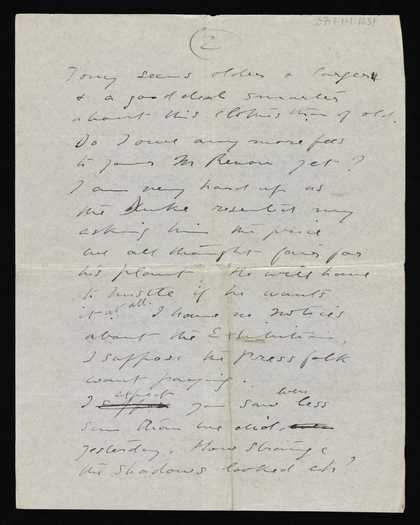 (2)
Tony seems older & larger
& a good deal smarter
about his clothes than of old.
Do I owe any more fees
to yours Mr yet?
I am very hard up as
the Duke resented my
asking him the price
we all thought fair for
his plant. He will have
to hustle if he wants
it at all. I have no notices
about the Exhibition,
I suppose the press folk
want paying.
I suppose expect you saw even less
sun than we did
yesterday. How strange
the shadows looked eh?